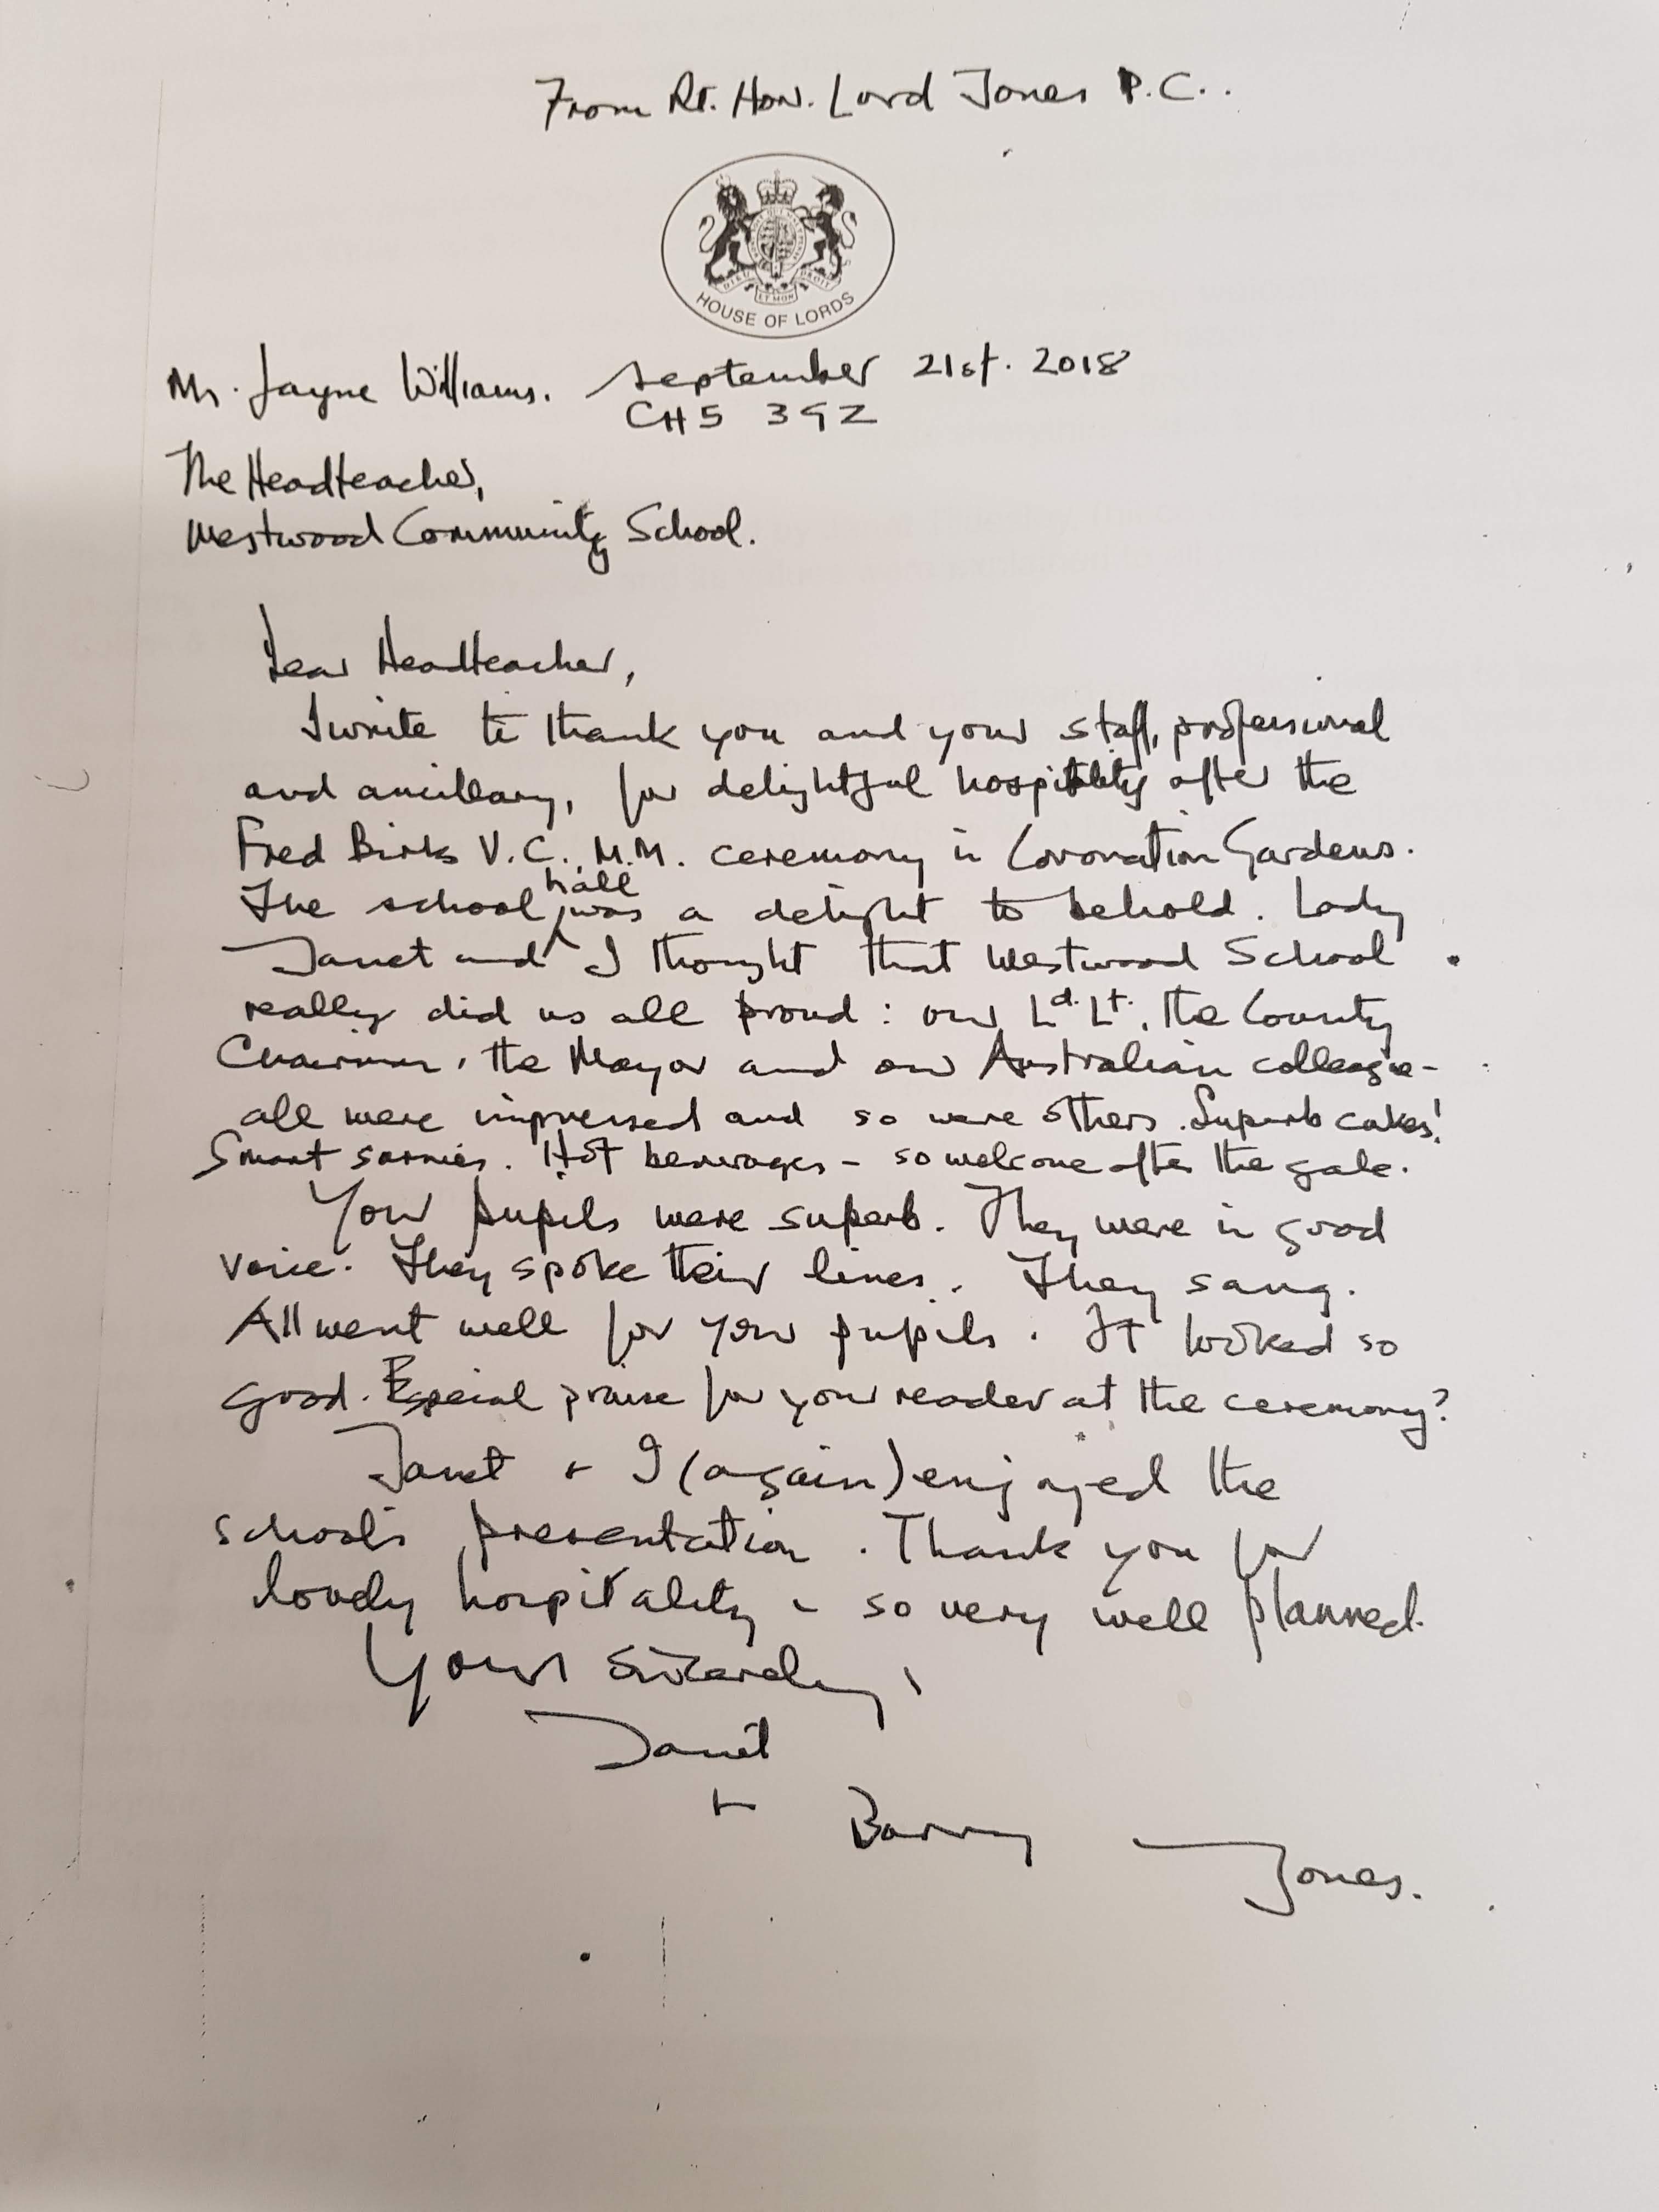 From Rt. Hon. Lord Jones P.C..
DIEU ET MON DROIT
HOUSE OF LORDS
Ms. Jayne Williams. September 21st. 2018
CH5 3
The Headteacher,
Westwood Community School.
Dear Headteacher,
I write to thank you and your staff, professional
and ancillary, for delightful hospitality after the
Fred Birks V.C., M.M. ceremony in Coronation Gardens.
The school hall was a delight to behold. Lady
Janet and I thought that Westwood School
really did us all proud: our Ld. Lt., the County
Chairman, the Mayor and our Australian colleague-
all were impressed and so were others. Superb cakes!
Smart sarnies. Hot beverages - so welcome after the gale.
Your pupils were superb. They were in good
voice. They spoke their lines. They sang.
All went well for your pupils. It looked so
good. Especial praise for your reader at the ceremony?
Janet + I (again) enjoyed the
school's presentation. Thank you for
lovely hospitality - so very well planned.
Yours sincerely,
Janet
+ Barry Jones.